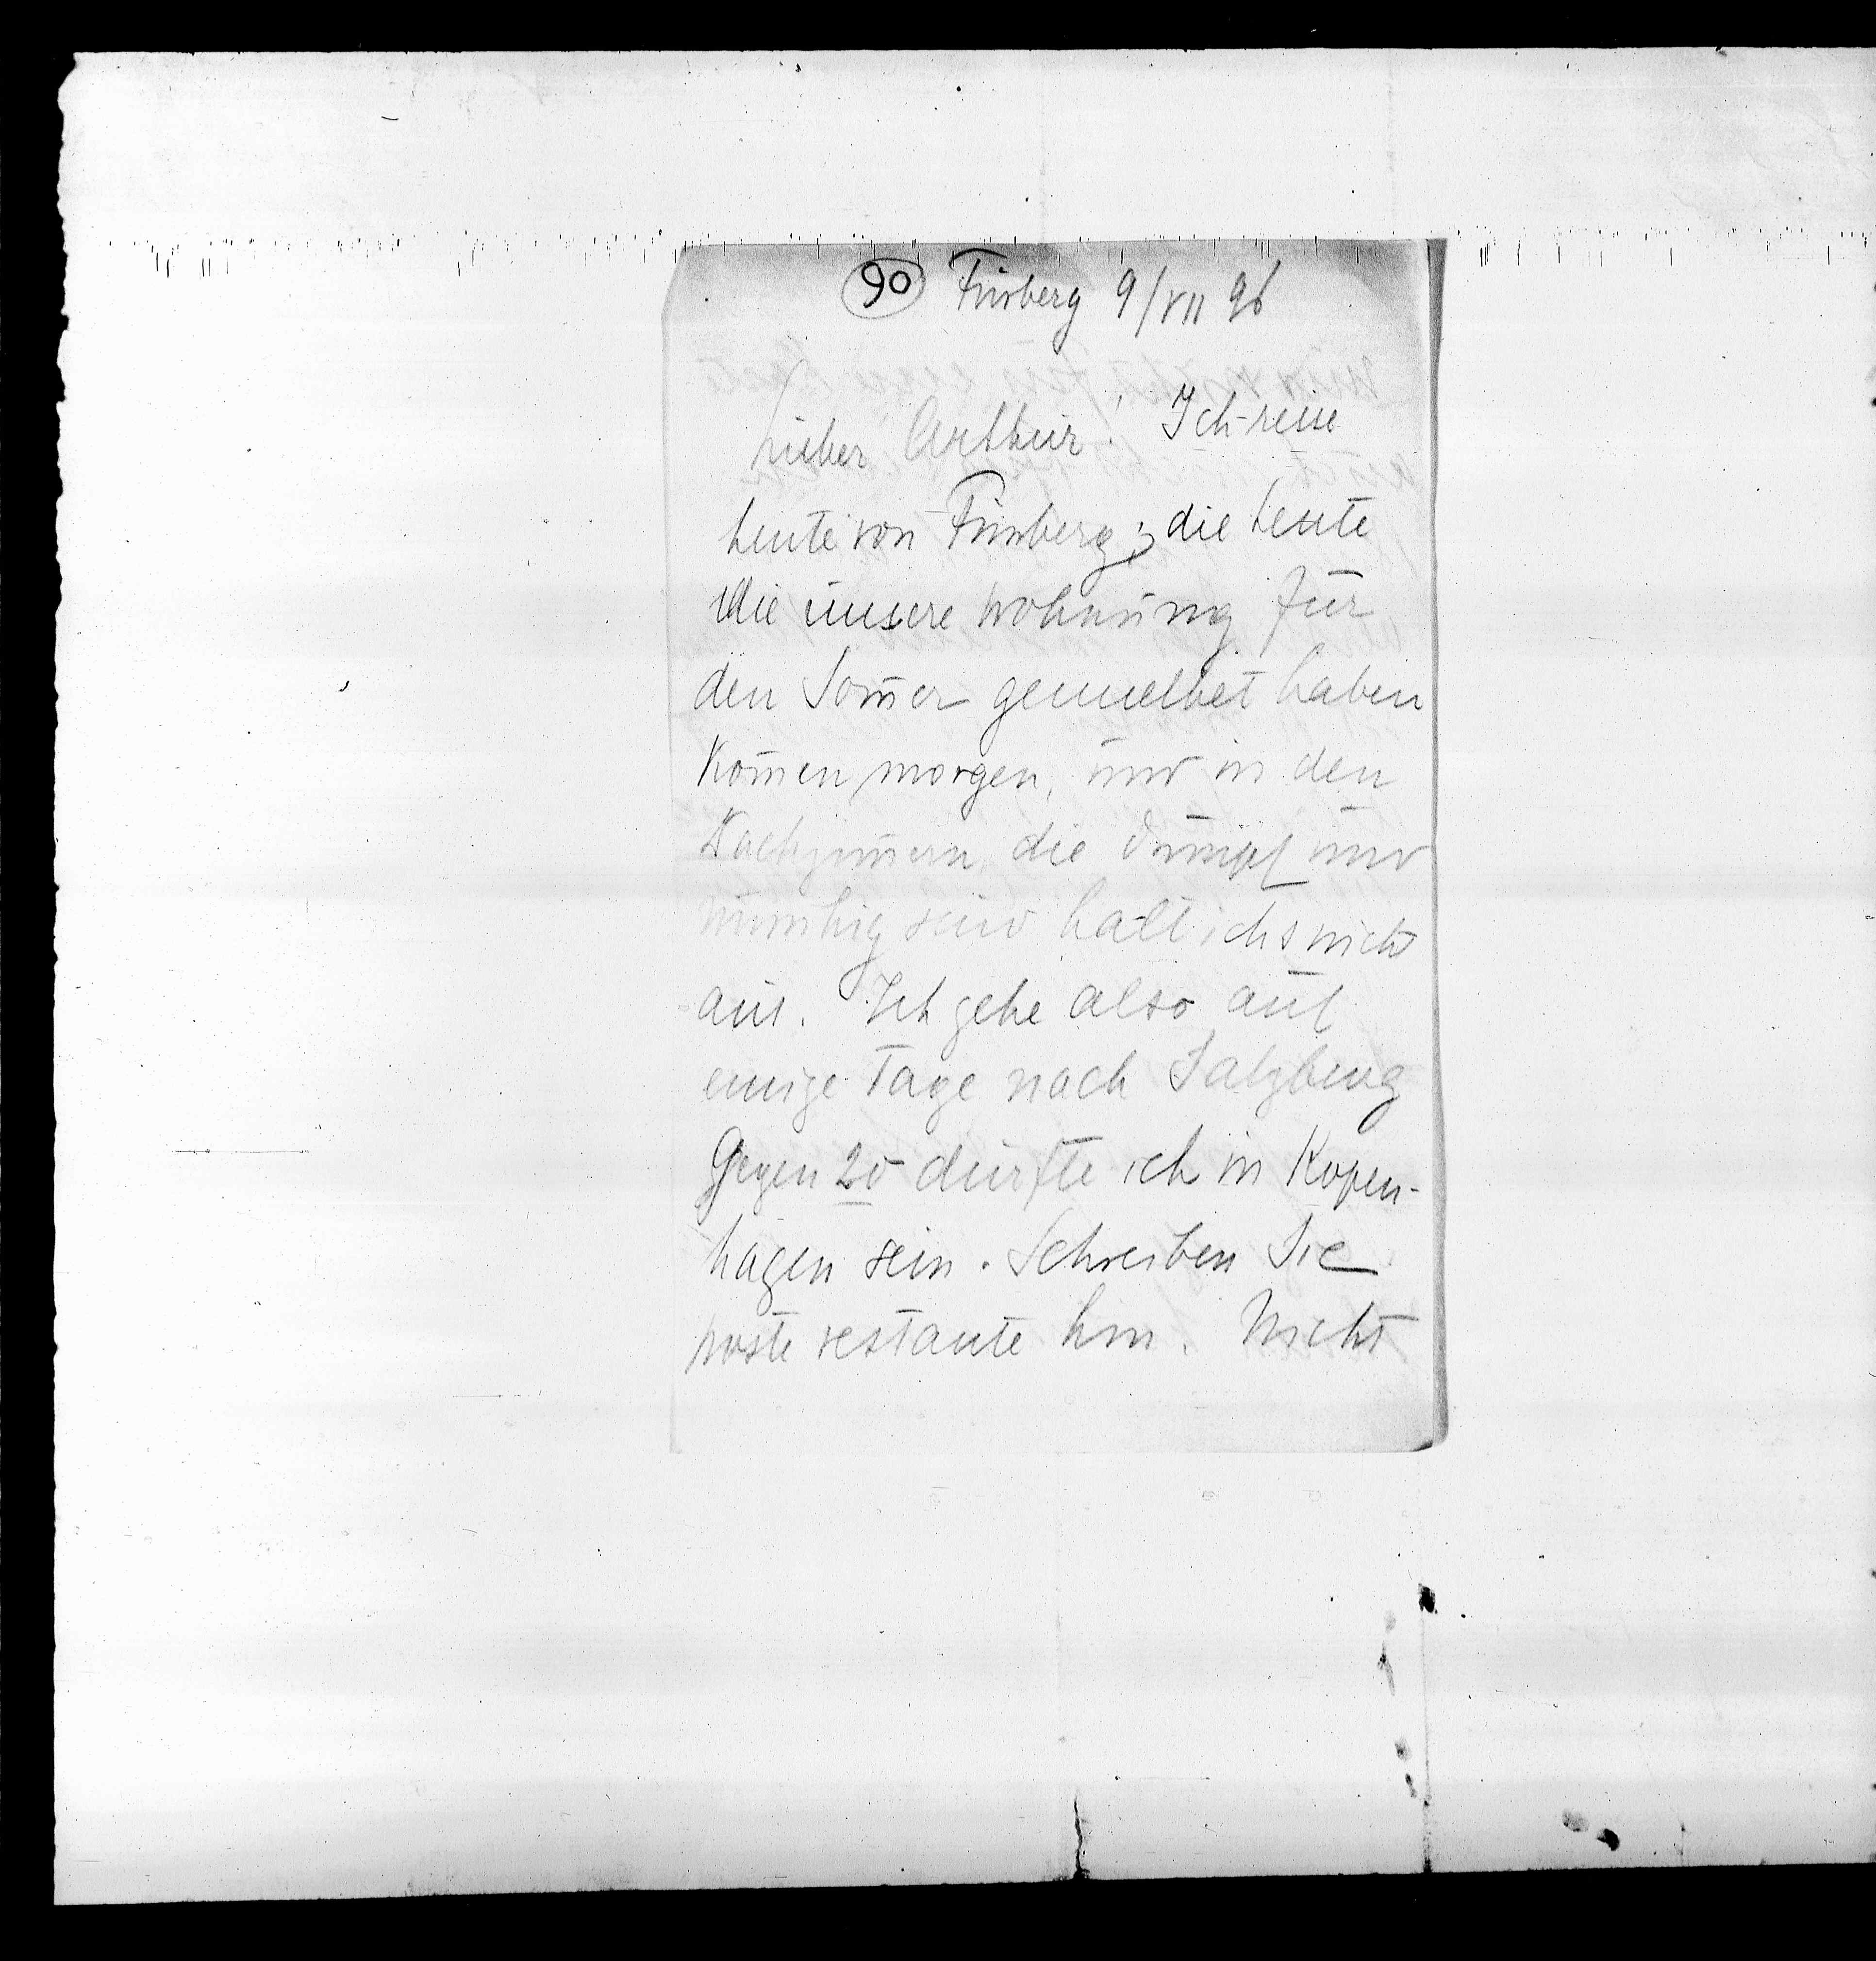 90 Fürberg 9/VII 96
Lieber Arthur! Ich reise
heute von Fürberg; die Leute
die unsere Wohnung für
den Som̄er gemiethet haben
kom̄en morgen, und in den
Dachzim̄ern, die dumpf und
unruhig sind halt ichs nicht
aus. Ich gehe also auf
einige Tage nach Salzburg
Gegen 20 dürfte ich in Kopen-
hagen sein. Schreiben Sie
poste restante hin. Nicht